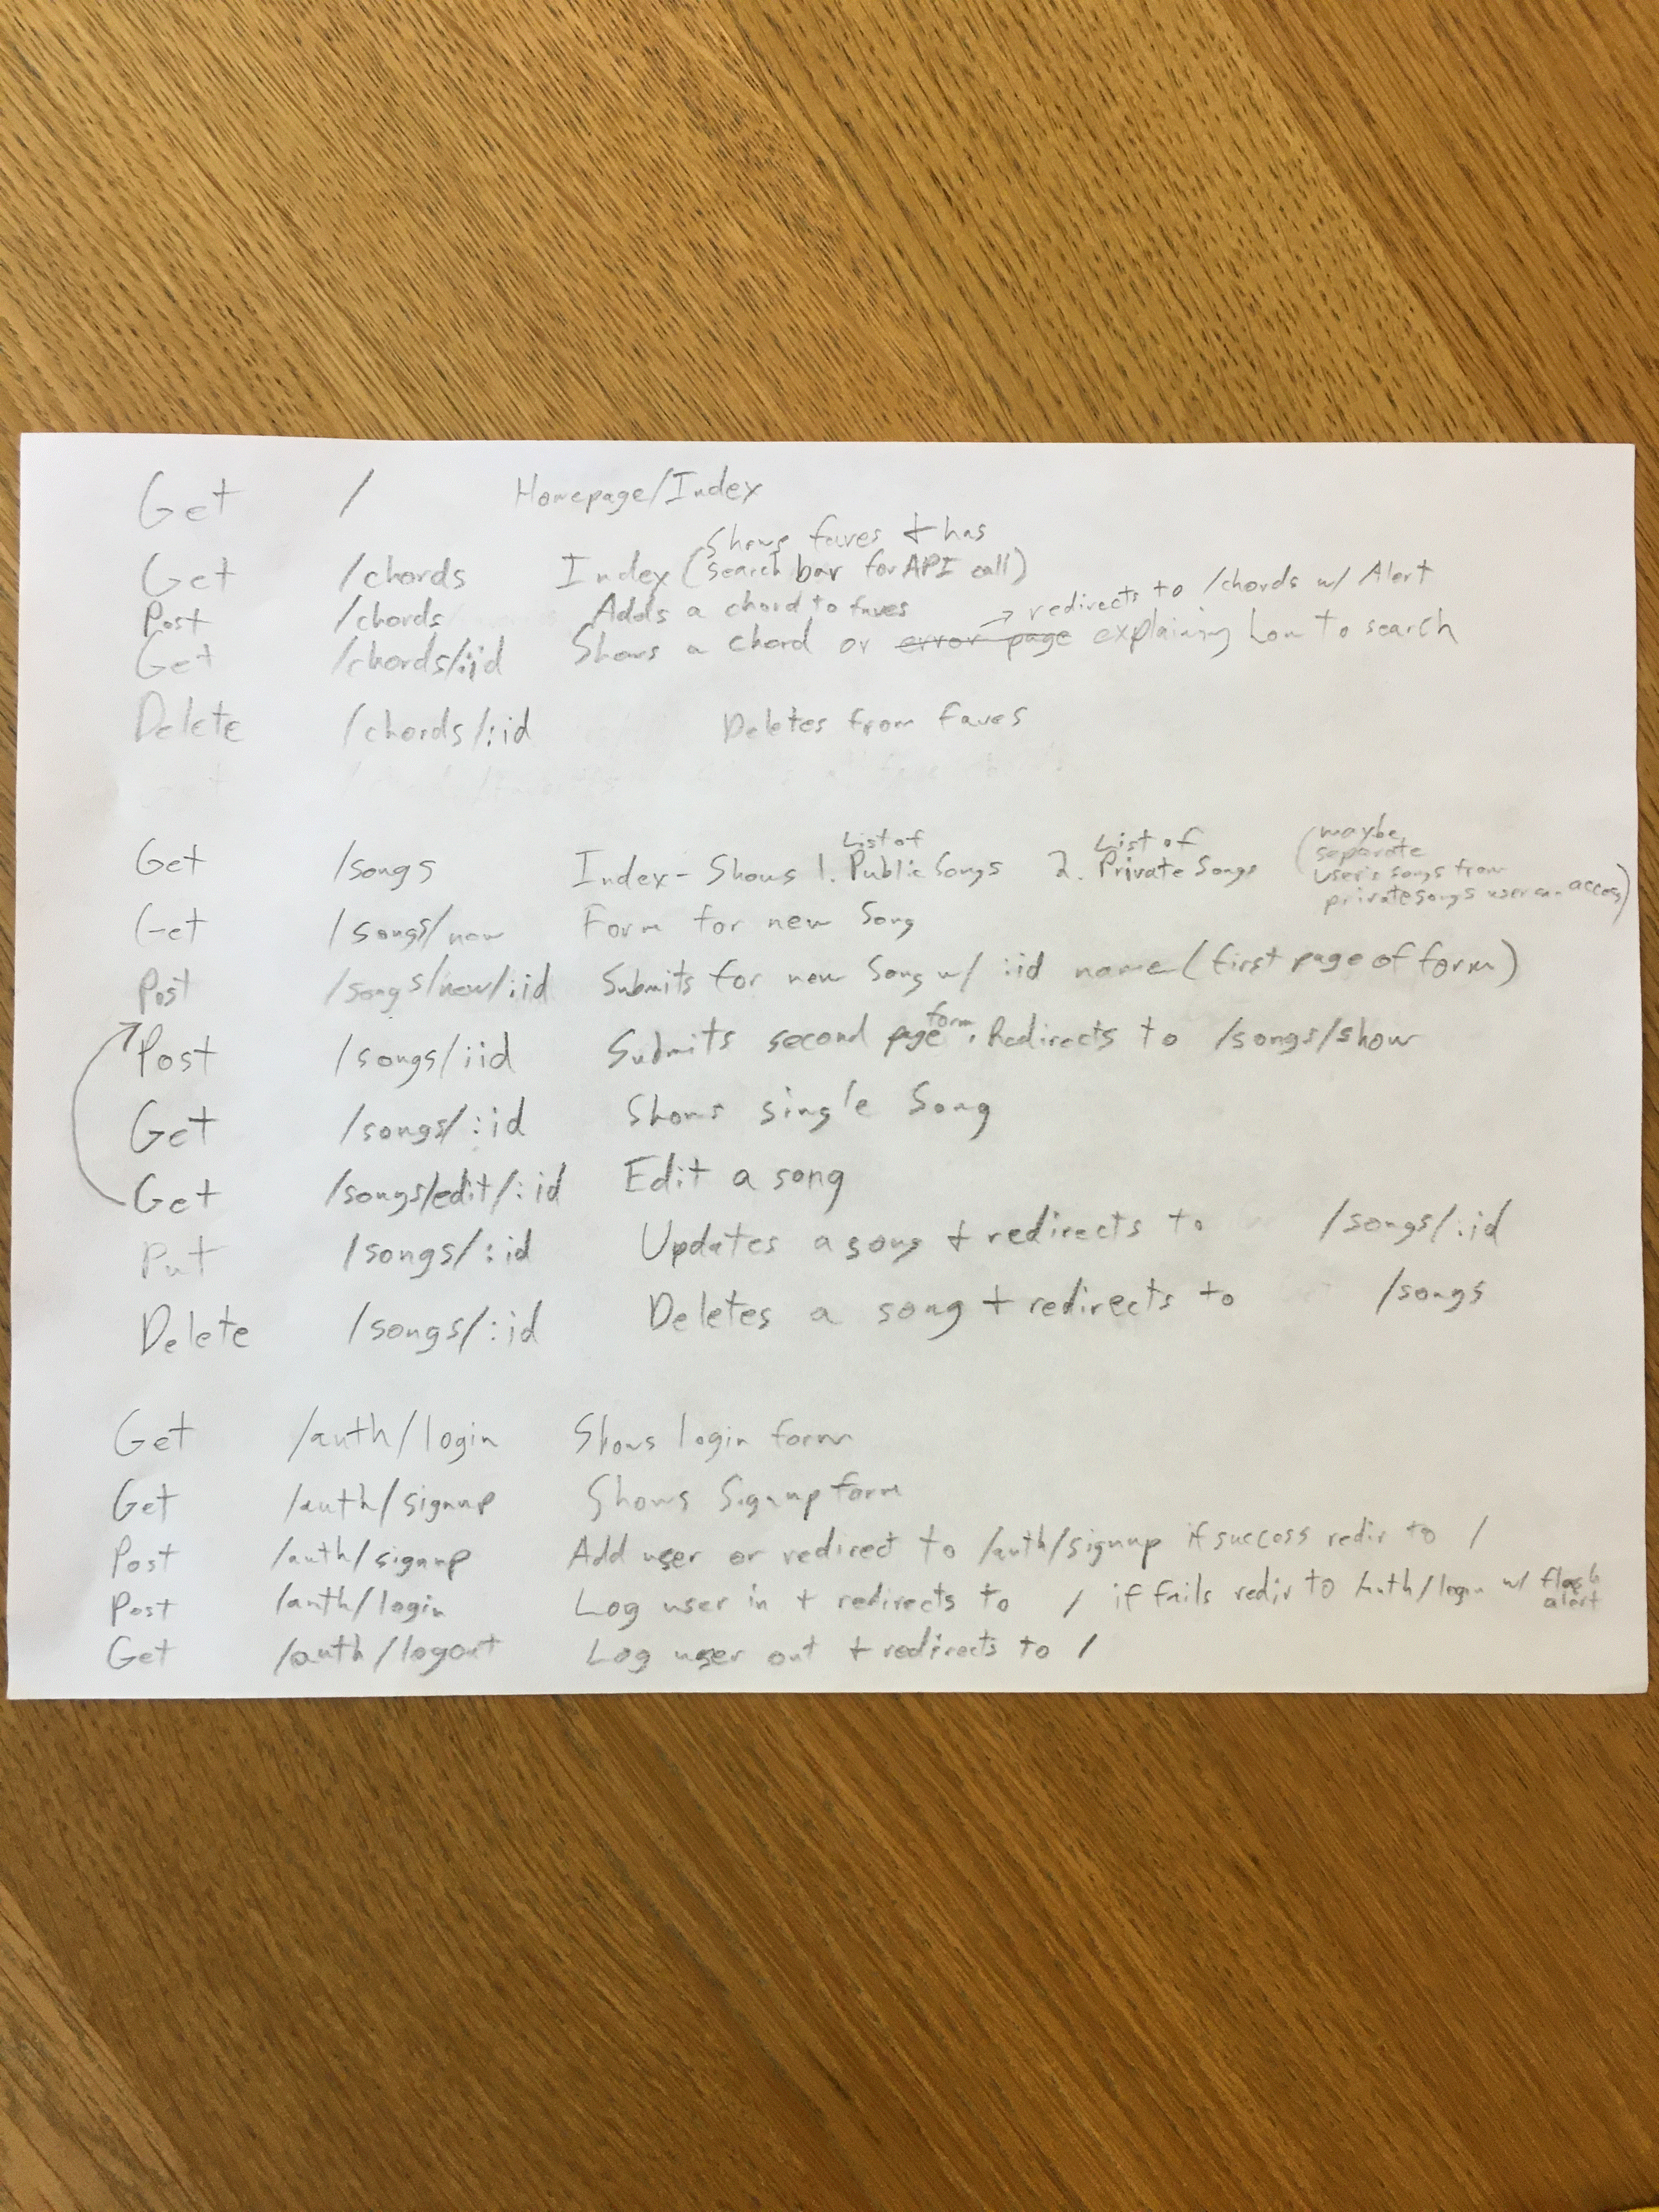 Get / Homepage/Index
Shows faves + has
Get /chords Index (search bar for API call)
redirects to /chords w/ Alert
Post /chords Adds a chord to faves
Get /chords/:id Shows a chord or error page explaining how to search
Delete /chords/:id Deletes from faves
List of List of
Get /songs Index - Shows 1. Public Songs 2. Private Songs (maybe
separate
user's songs from
private songs user can access)
Get /songs/new Form for new Song
Post /songs/new/:id Submits for new Song w/ :id name (first page of form)
Post /songs/:id Submits second page form. Redirects to /songs/show
Get /songs/:id Shows single Song
Get /songs/edit/:id Edit a song
Put /songs/:id Updates a song + redirects to /songs/:id
Delete /songs/:id Deletes a song + redirects to /songs
Get /auth/login Shows login form
Get /auth/signup Shows Signup form
Post /auth/signup Add user or redirect to /auth/signup if success redir to /
Post /auth/login Log user in + redirects to / if fails redir to Auth/login w/ flash alert
Get /auth/logout Log user out + redirects to /